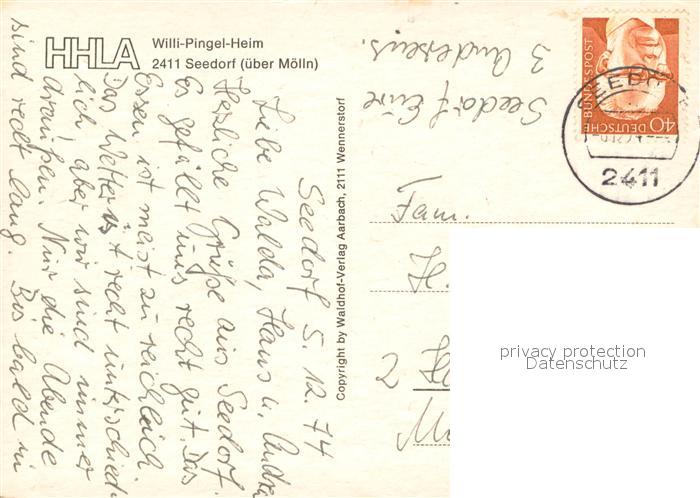 HHLA
Willi-Pingel-Heim
2411 Seedorf (über Mölln)
Seedorf 5. 12. 74
Liebe Walda, Hans u. Andrea
Herzliche Grüße aus Seedorf.
Es gefällt uns recht gut. Das
Essen ist meist zu reichlich.
Das Wetter ist recht unterschied-
lich aber wir sind immer
draußen. Nur die Abende
sind recht lang. Bis bald in
Seedorf Eure
3 Andersens.
Copyright by Waldhof-Verlag Aarbach, 2111 Wennerstorf
DEUTSCHE
BUNDESPOST
40
2411
Fam.
H.
2
privacy protection
Datenschutz